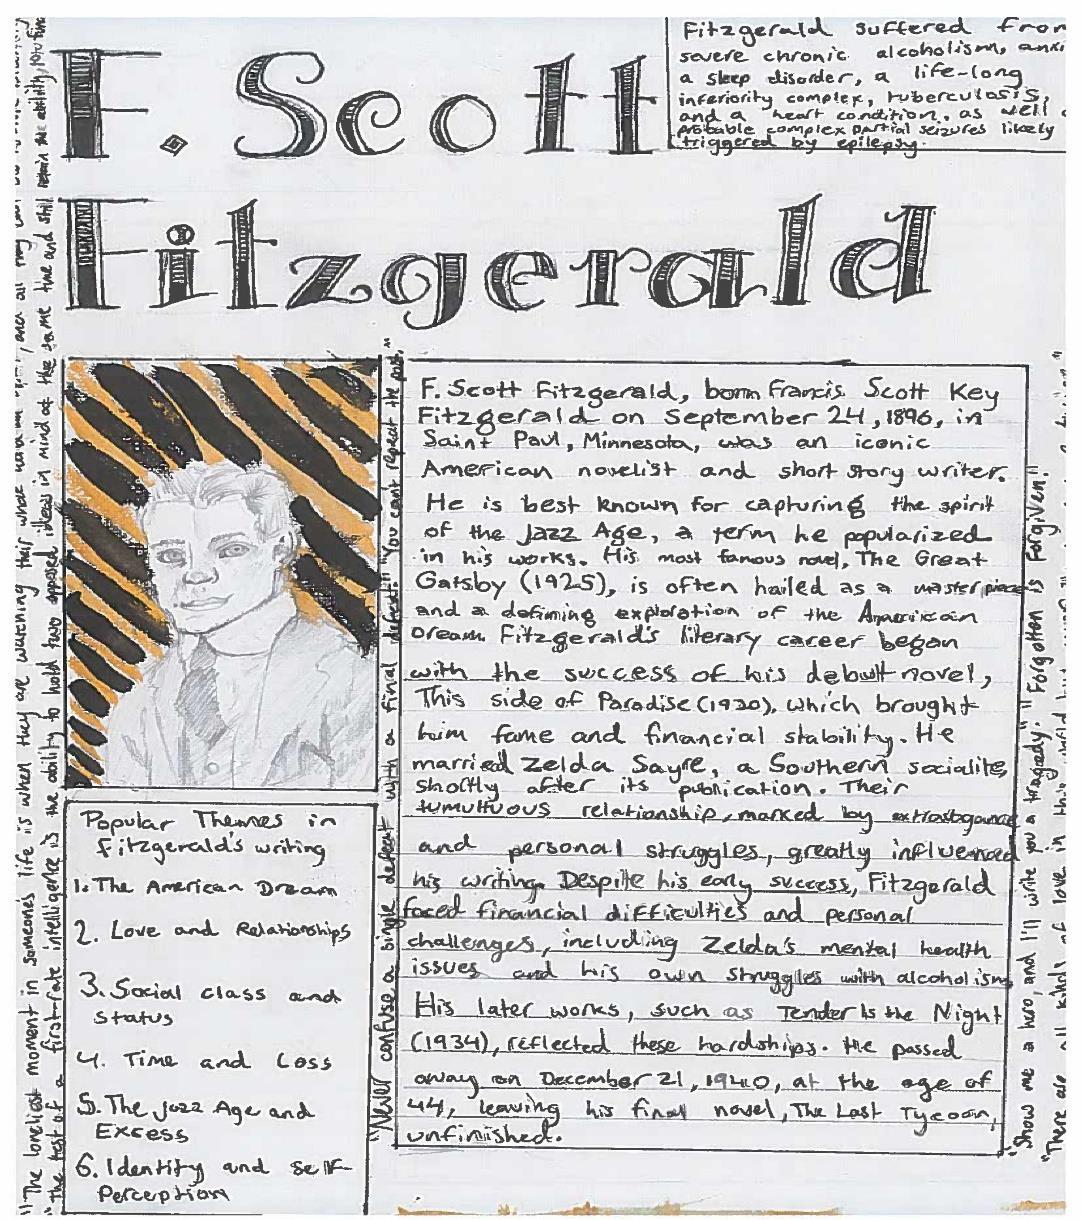 F. Scott
Fitzgerald
Fitzgerald suffered from
severe chronic alcoholism,
a sleep disorder, a life-long
inferiority complex, tuberculosis,
and a heart condition. as well
probable complex partial seizures likely
triggered by epilepsy.
F. Scott Fitzgerald, born Francis Scott Key
Fitzgerald on September 24, 1896, in
Saint Paul, Minnesota, was an iconic
American novelist and short story writer.
He is best known for capturing the spirit
of the Jazz Age, a term he popularized
in his works. His most famous novel, The Great
Gatsby (1925), is often hailed as a masterpiece
and a defining exploration of the American
Dream. Fitzgerald's literary career began
with the success of his debut novel,
This side of Paradise (1920), which brought
him fame and financial stability. He
married Zelda Sayre, a Southern socialite,
shortly after its publication. Their
tumultuous relationship, marked by
and personal struggles, greatly influenced
his writing. Despite his early success, Fitzgerald
faced financial difficulties and personal
challenges, including Zelda's mental health
issues and his own struggles with alcoholism
His later works, such as Tender Is the Night
(1934), reflected these hardships. He passed
away on December 21, 1940, at the age of
44, leaving his final novel, The Last Tycoon,
unfinished.
Popular Themes in
Fitzgerald's writing
1. The American Dream
2. Love and Relationships
3. Social class and
status
4. Time and Loss
5. The Jazz Age and
Excess
6. Identity and self-
Perception
"The loneliest moment in someones life is when they are watching their whole and all they can
"the test of a first-rate intelligence is the ability to hold two opposed ideas in mind at the same time and still retain the ability to
"Never confuse a single defeat with a final defeat." "You cant repeat the past."
"Show me a hero, and I'll write you a tragedy." "Forgotten is Forgiven."
"There are all kinds of love in this world but